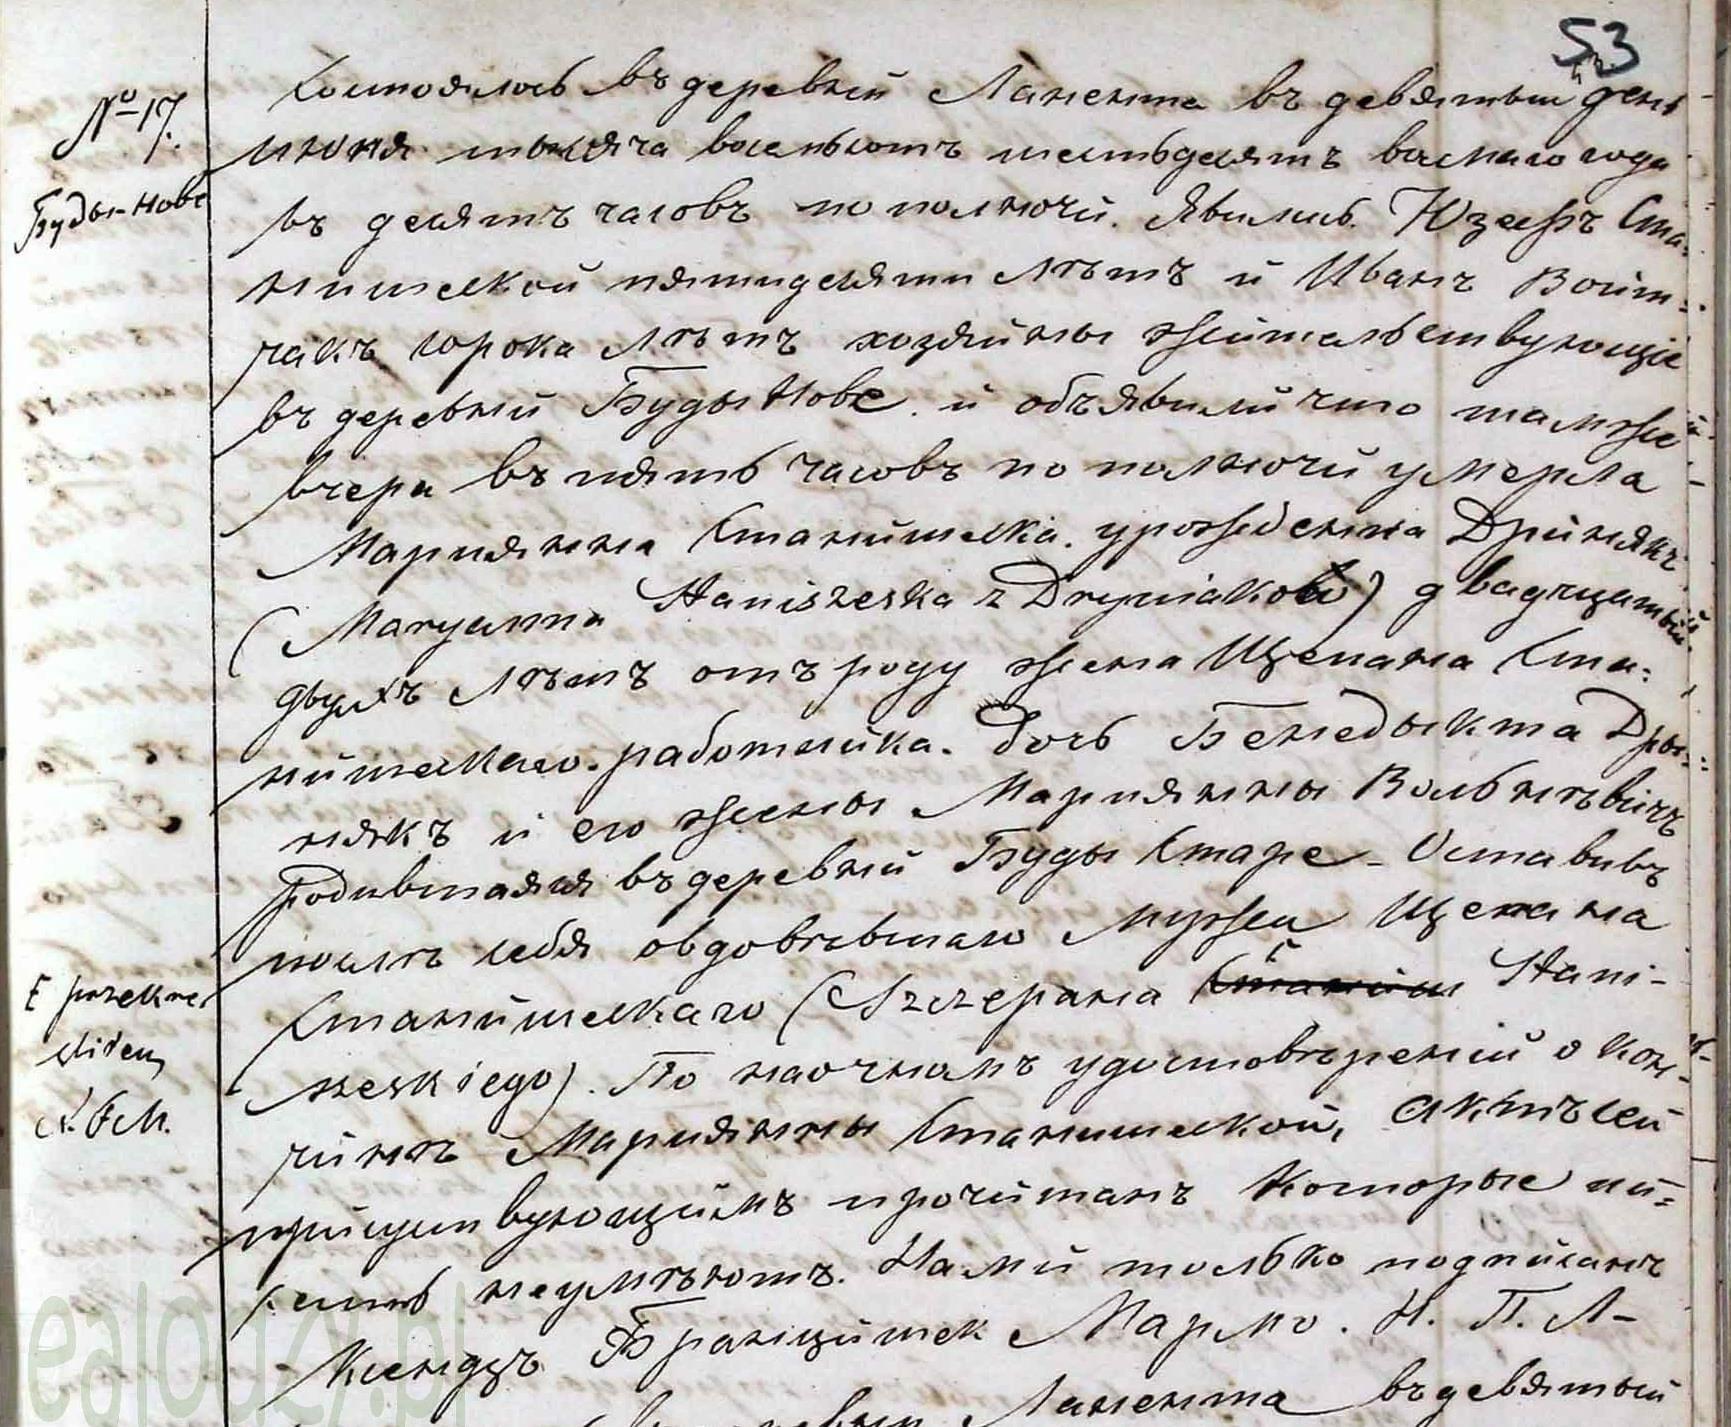 53
№ 17.
Буды-Нове
Состоялось въ деревни Лакента въ девятый день
июня тысяча восемьсотъ шестьдесятъ восмаго года
въ десятъ часовъ по полночи. Явились Юзефъ Ста-
нишеской пятидесяти лѣтъ и Иванъ Войт-
чакъ сорока лѣтъ хозяйны жительствующіе
въ деревни Буды Нове. и объявили что тамже
вчера въ пять часовъ по полночи умерла
Мариянна Станишеска. урожденна Дринякъ
(Maryanna Staniszeska z Dryniakow) двадцатый
двухъ лѣтъ отъ роду жена Щепана Ста-
нишескаго. работника. Дочь Бенедыкта Дры-
някъ и его жены Марианны Вольнѣвичъ
Родившаяся въ деревни Буды Старе - Оставивъ
послѣ себя овдовѣвшаго мужа Щепана
Станишескаго (Szczepana Станиш Stani-
szeskiego). По наочномъ удостовѣреній о кон-
чинѣ Марианны Станишеской, Актъ сей
присуствующимъ прочитанъ Которые пи-
сать неумѣютъ. Нами только подписанъ
Ксендзъ Францишек Мармо. Н. П. Л-
Лакента въ девятый